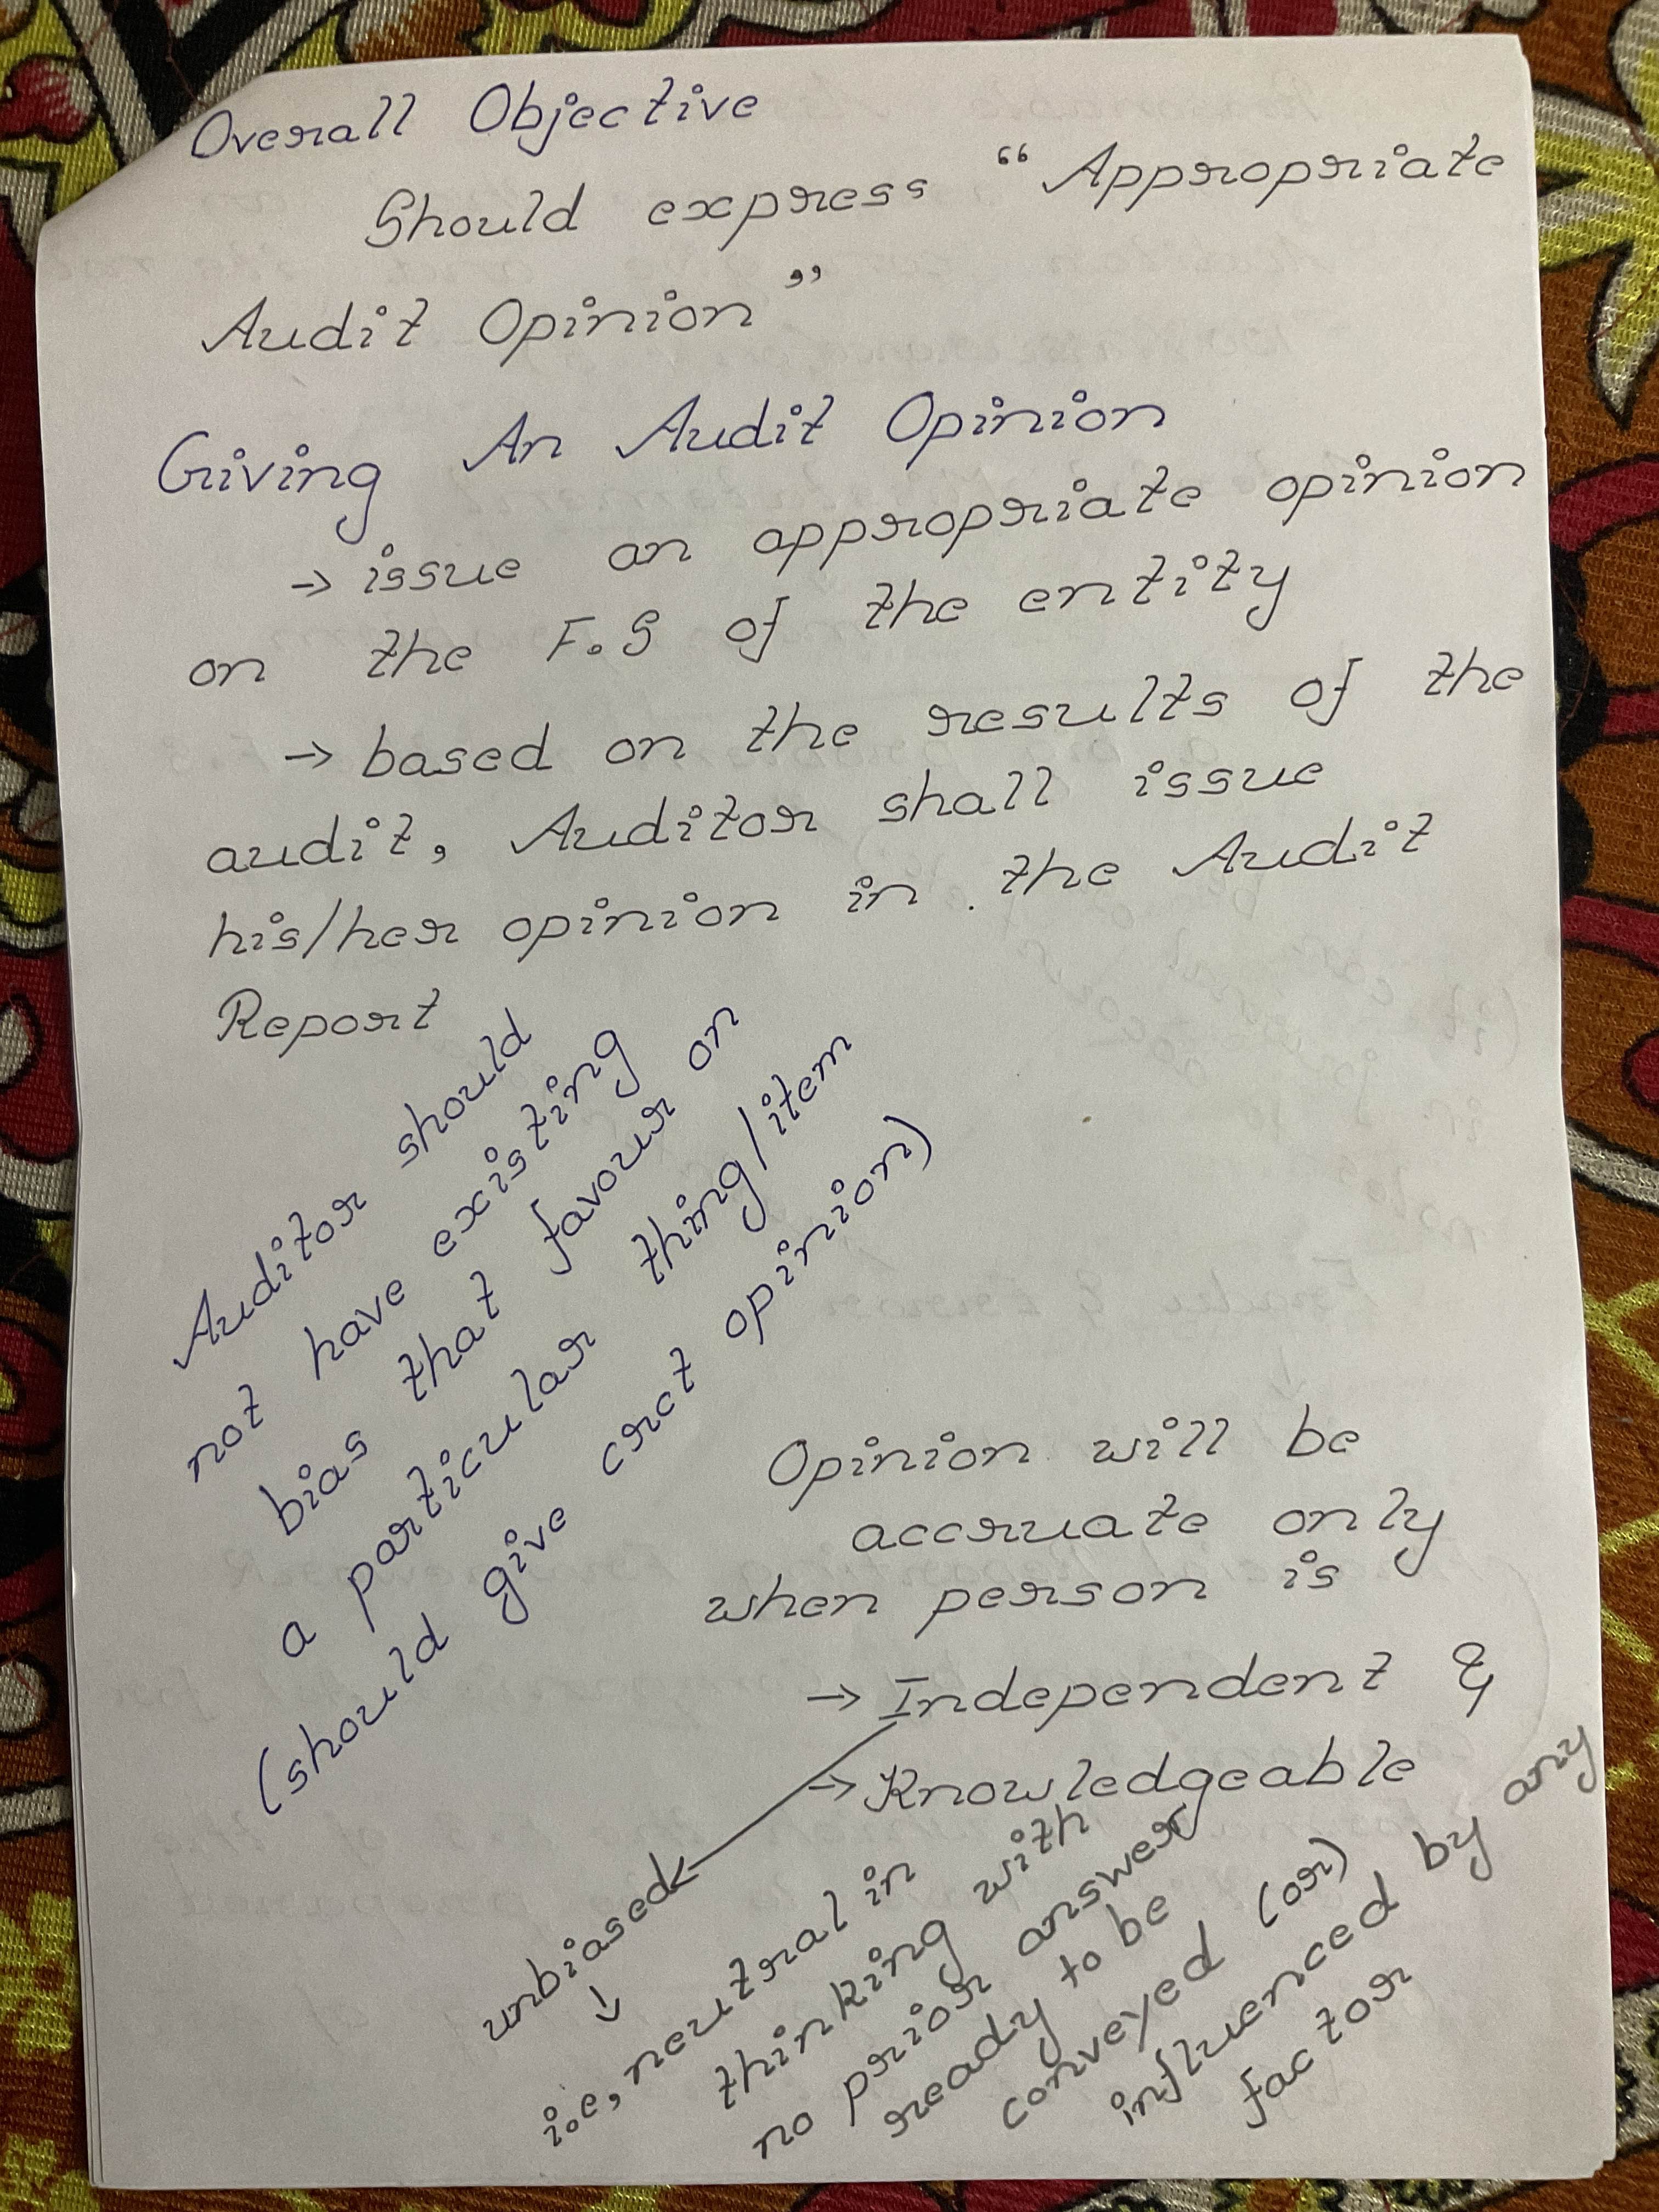 Overall Objective
Should express “Appropriate
Audit Opinion”
Giving An Audit Opinion
→ issue an appropriate opinion
on the F.S of the entity
→ based on the results of the
audit, Auditor shall issue
his/her opinion in the Audit
Report
Auditor should
not have existing
bias that favour on
a particular thing/item
(should give crct opinion)
Opinion will be
accruate only
when person is
→ Independent &
→ Knowledgeable
unbiased
↓
i.e, neutral in
thinking with
no prior answer
ready to be
conveyed (or)
influenced by any
factor